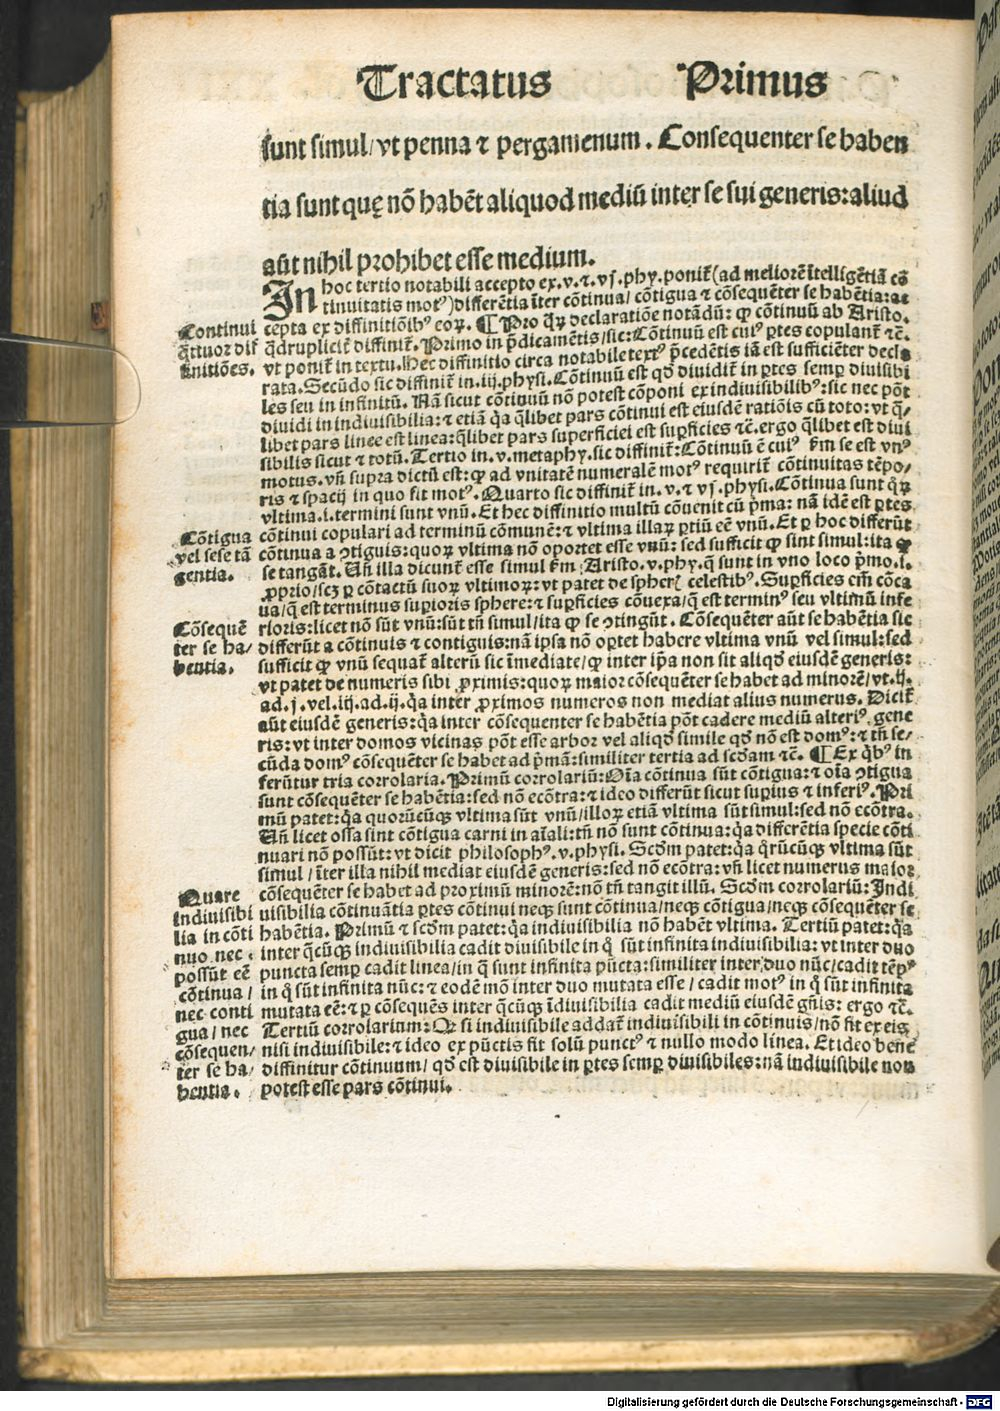 Tractatus Primus
sunt simul/ vt penna ⁊ pergamenum. Consequenter se haben
tia sunt quę nō habēt aliquod mediū inter se sui generis: aliud
aūt nihil prohibet esse medium.
In hoc tertio notabili accepto ex. v. ⁊. vj. phy. poniť (ad meliorē ītelligētiā cō
tinuitatis motꝰ) differētia īter cōtinua/ cōtigua ⁊ cōsequēter se habētia: ac
Continui
cepta ex diffinitiōibꝰ eoꝝ. ¶ Pro qꝝ declaratiōe notādū: ꝙ cōtinuū ab Aristo.
q̄ttuor dif
q̄drupliciť diffiniť. Primo in p̄dicamētis/ sic: Cōtinuū est cuiꝰ ꝑtes copulanť ⁊c̄.
finitiōes.
vt poniť in textu. Hec diffinitio circa notabile textꝰ p̄cedētis iā est sufficiēter decla
rata. Secūdo sic diffiniť in. iij. physi. Cōtinuū est qđ diuidiť in ꝑtes semꝑ diuisibi
les seu in infinitū. Nā sicut cōtinuū nō potest cōponi ex indiuisibilibꝰ: sic nec pōt
diuidi in indiuisibilia: ⁊ etiā q̇a q̄libet pars cōtinui est eiusdē ratiōis cū toto: vt q̄/
libet pars linee est linea: q̄libet pars superficiei est suꝑficies ⁊c̄. ergo q̄libet est diui
sibilis sicut ⁊ totū. Tertio in. v. metaphy. sic diffiniť: Cōtinuū ē cuiꝰ ẜm se est vnꝰ
motus. vñ supra dictū est: ꝙ ad vnitatē numeralē motꝰ requiriť cōtinuitas tēpo/
ris ⁊ spacij in quo fit motꝰ. Quarto sic diffiniť in. v. ⁊ vj. physi. Cōtinua sunt qꝝ
vltima. i. termini sunt vnū. Et hec diffinitio multū cōuenit cū p̄ma: nā idē est ꝑtes
Cōtigua
cōtinui copulari ad terminū cōmunē: ⁊ vltima illaꝝ ꝑtiū eē vnū. Et ꝑ hoc differūt
vel sese tā
cōtinua a ꝯtiguis: quoꝝ vltima nō oportet esse vnū: sed sufficit ꝙ sint simul: ita ꝙ
gentia.
se tangāt. Uñ illa dicunť esse simul ẜm Aristo. v. phy. q̄ sunt in vno loco p̄mo. i.
ꝓprio/ scꝫ ꝑ cōtactū suoꝝ vltimoꝝ: vt patet de spheris celestibꝰ. Suꝑficies em̄ cōca
ua/ q̄ est terminus suꝑioris sphere: ⁊ suꝑficies cōuexa/ q̄ est terminꝰ seu vltimū infe
Cōsequē
rioris: licet nō sūt vnū: sūt tñ simul/ ita ꝙ se ꝯtingūt. Cōsequēter aūt se habētia sic
ter se ha/
differūt a cōtinuis ⁊ contiguis: nā ipsa nō oꝑtet habere vltima vnū vel simul: sed
bentia.
sufficit ꝙ vnū sequať alterū sic īmediate/ ꝙ inter ip̄a non sit aliqđ eiusdē generis:
vt patet de numeris sibi ꝓximis: quoꝝ maior cōsequēter se habet ad minorē/ vt. ij.
ad. j. vel. iij. ad. ij. q̇a inter ꝓximos numeros non mediat alius numerus. Diciť
aūt eiusdē generis: q̇a inter cōsequenter se habētia pōt cadere mediū alteriꝰ gene
ris: vt inter domos vicinas pōt esse arbor vel aliqđ simile qđ nō est domꝰ: ⁊ tñ se/
cūda domꝰ cōsequēter se habet ad p̄mā: similiter tertia ad scđam ⁊c̄. ¶ Ex q̇bꝰ in
ferūtur tria corrolaria. Primū corrolariū: Oīa cōtinua sūt cōtigua: ⁊ oīa ꝯtigua
sunt cōsequēter se habētia: sed nō ecōtra: ⁊ ideo differūt sicut suꝑius ⁊ inferiꝰ. Pri
mū patet: q̇a quorūcūqꝫ vltima sūt vnū/ illoꝝ etiā vltima sūt simul: sed nō ecōtra.
Uñ licet ossa sint cōtigua carni in aīali: tñ nō sunt cōtinua: q̇a differētia specie cōti
nuari nō possūt: vt dicit philosophꝰ. v. physi. Scđm patet: q̇a q̄rūcūqꝫ vltima sūt
simul/ īter illa nihil mediat eiusdē generis: sed nō ecōtra: vñ licet numerus maior
Quare
cōsequēter se habet ad proximū minorē: nō tñ tangit illū. Scđm corrolariū: Indi
indiuisibi
uisibilia cōtinuātia ꝑtes cōtinui neqꝫ sunt cōtinua/ neqꝫ cōtigua/ neqꝫ cōsequēter se
lia in cōti
habētia. Primū ⁊ scđm patet: q̇a indiuisibilia nō habēt vltima. Tertiū patet: q̇a
nuo nec
inter q̄cūqꝫ indiuisibilia cadit diuisibile in q̊ sūt infinita indiuisibilia: vt inter duo
possūt eē
puncta semꝑ cadit linea/ in q̄ sunt infinita pūcta: similiter inter duo nūc/ cadit tēpꝰ
cōtinua/
in q̊ sūt infinita nūc: ⁊ eodē mō inter duo mutata esse/ cadit motꝰ in q̊ sūt infinita
nec conti
mutata eē: ⁊ ꝑ cōsequēs inter q̄cūqꝫ īdiuisibilia cadit mediū eiusdē gn̄is: ergo ⁊c̄.
gua/ nec
Tertiū corrolarium: Qꝙ si indiuisibile addať indiuisibili in cōtinuis/ nō fit ex eis
cōsequen/
nisi indiuisibile: ⁊ ideo ex pūctis fit solū punctꝰ ⁊ nullo modo linea. Et ideo bene
ter se ha/
diffinitur cōtinuum/ qđ est diuisibile in ꝑtes semꝑ diuisibiles: nā indiuisibile non
bentia.
potest esse pars cōtinui.
Digitalisierung gefördert durch die Deutsche Forschungsgemeinschaft - DFG